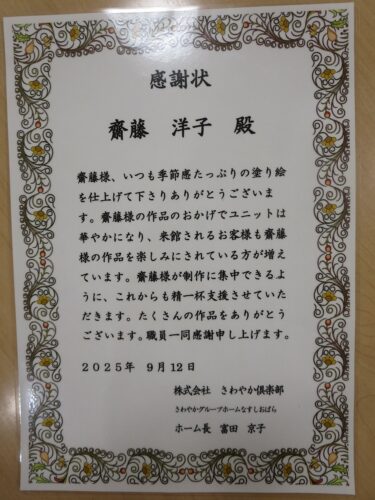 感謝状
齋藤　洋子　殿
齋藤様、いつも季節感たっぷりの塗り絵
を仕上げて下さりありがとうございま
す。齋藤様の作品のおかげでユニットは
華やかになり、来館されるお客様も齋藤
様の作品を楽しみにされている方が増え
ています。齋藤様が制作に集中できるよ
うに、これからも精一杯支援させていた
だきます。たくさんの作品をありがとう
ございます。職員一同感謝申し上げます。
２０２５年　９月１２日
株式会社　さわやか倶楽部
さわやかグループホームなすしおばら
ホーム長　富田　京子